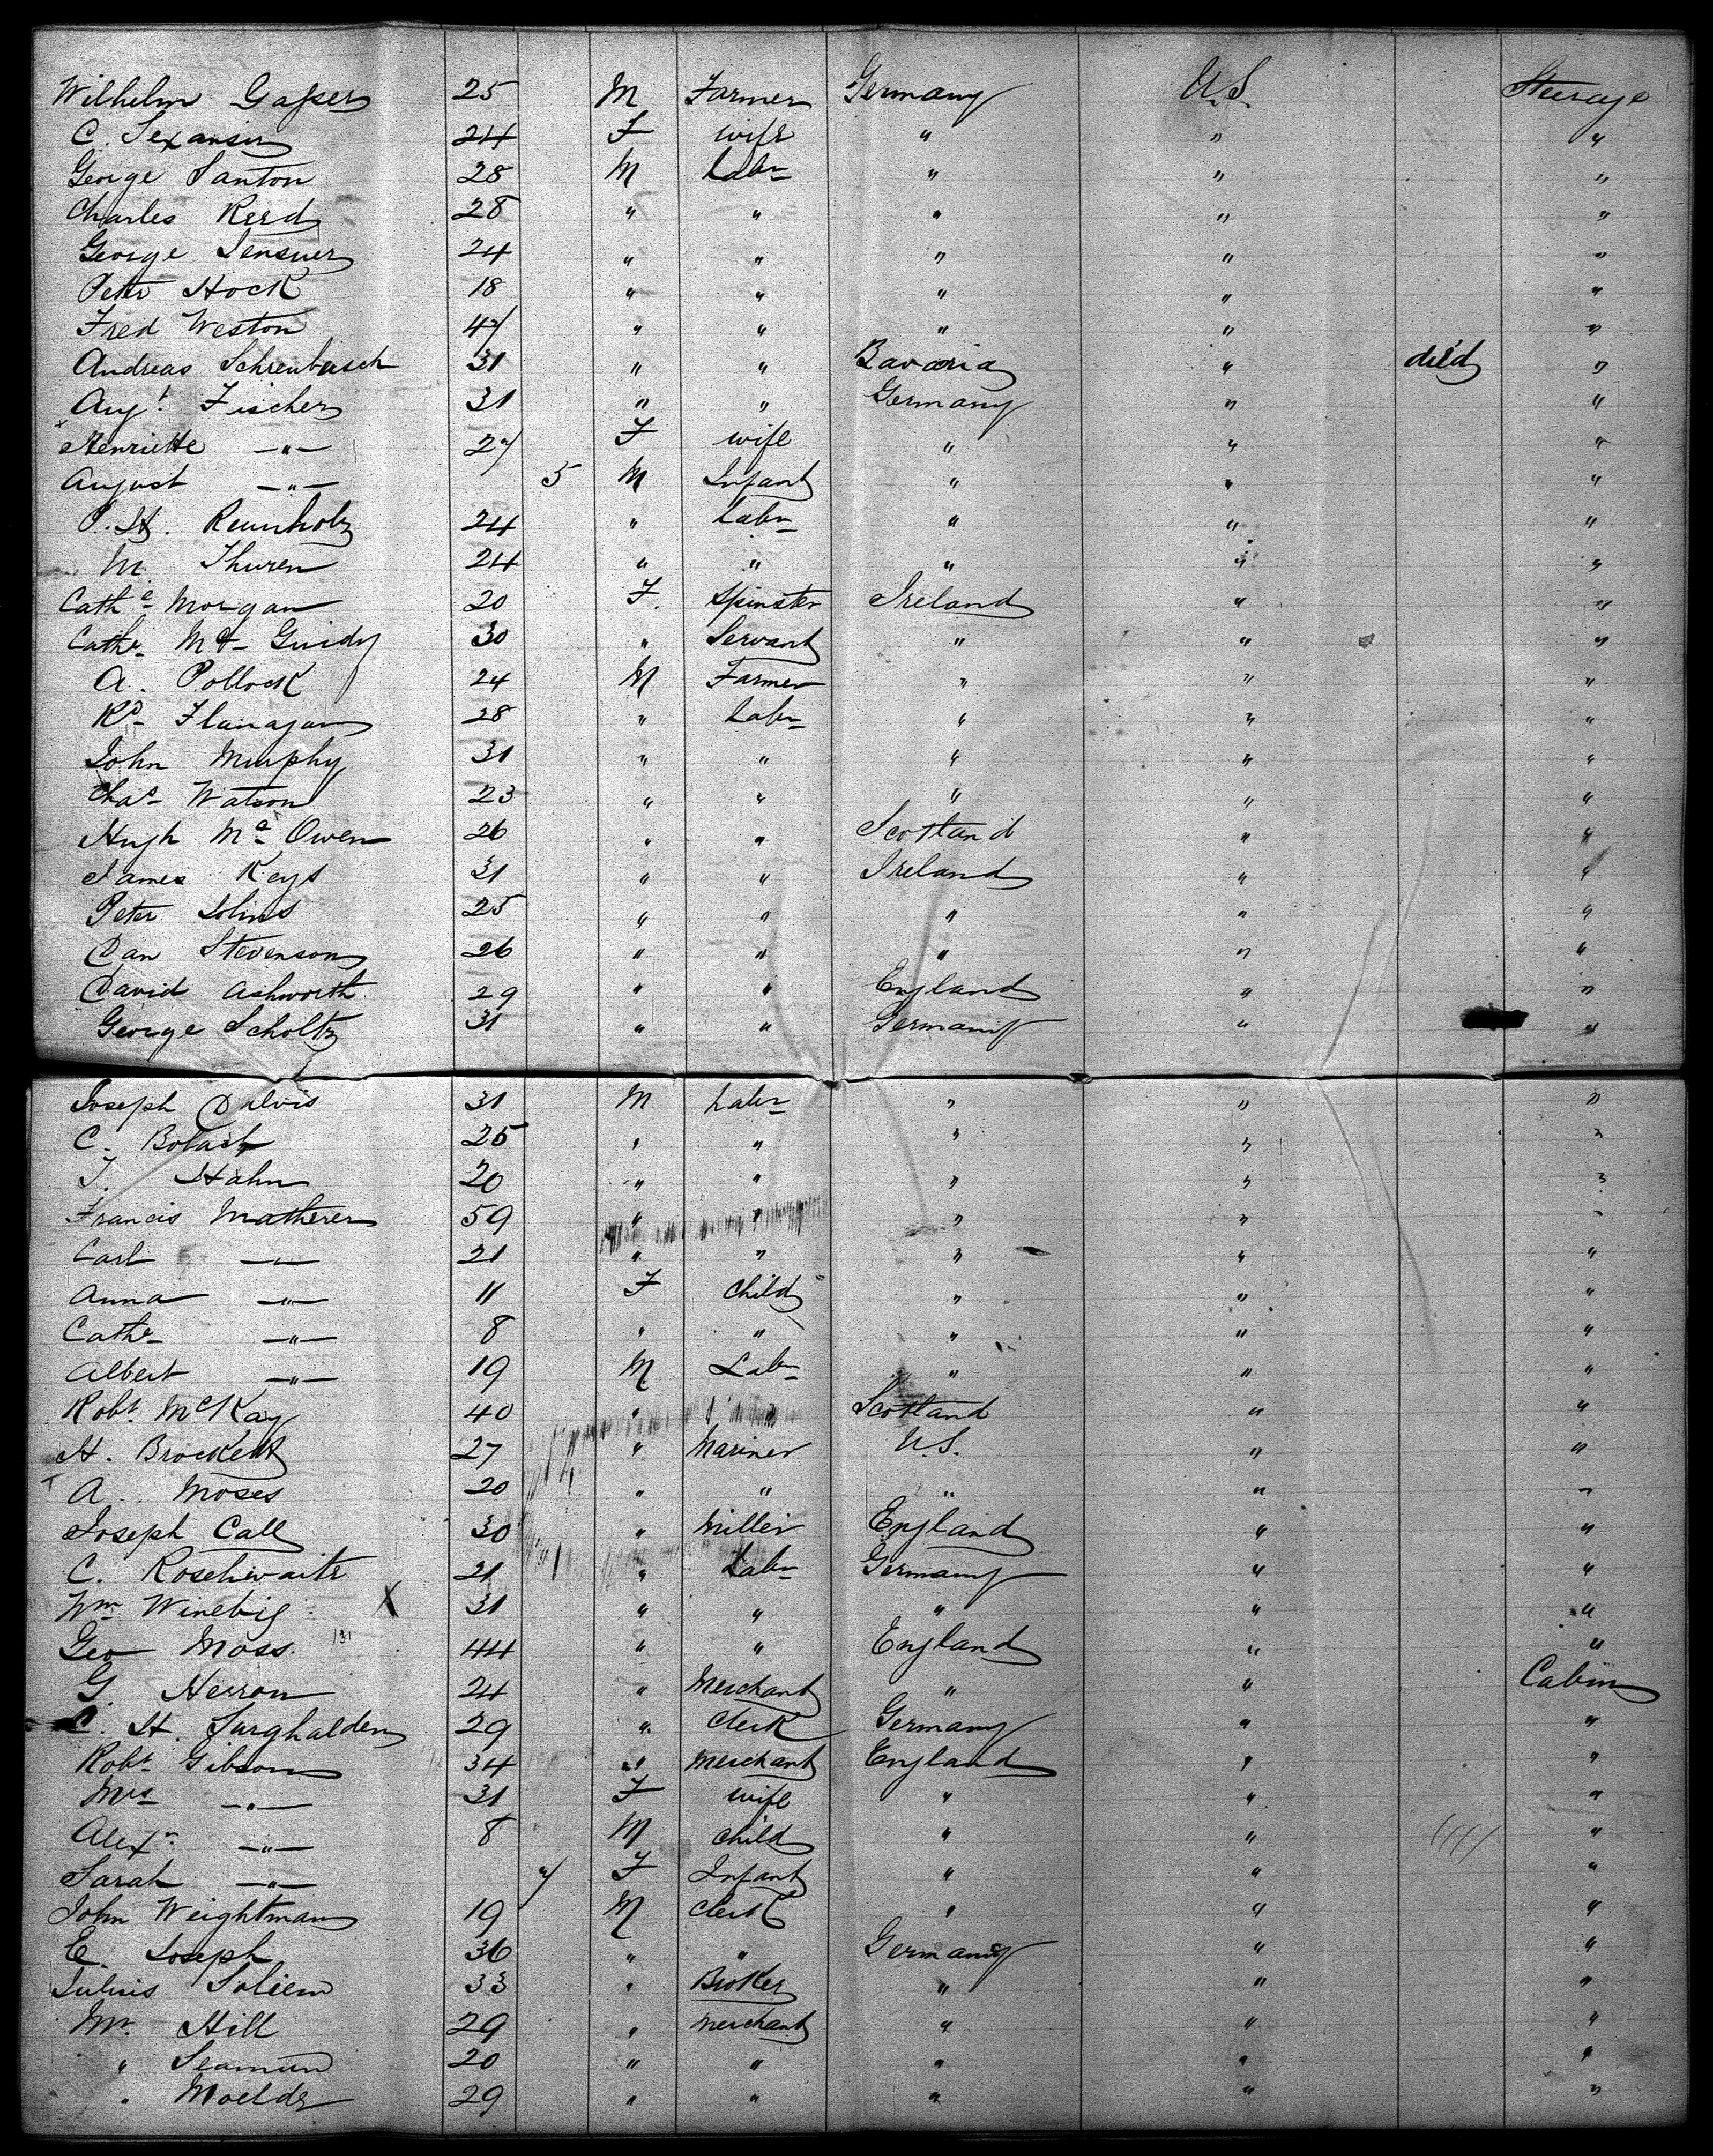 Wilhelm Gasser 25 M Farmer Germany U.S. Steerage
C. 24 F wife " " "
George Santon 28 M Labr " " "
Charles Reed 28 " " " " "
George Sensner 24 " " " " "
Peter Hock 18 " " " " "
Fred Weston 47 " " " " "
Andreas Schrenbasch 31 " " Bavaria " died "
Augt. Fischer 31 " " Germany " "
Henriette —"— 27 F wife " " "
August —"— 5 M Infant " " "
P. H. Reunholz 24 " Labr " " "
M. Thuren 24 " " " " "
Cathe Morgan 20 F. Spinster Ireland " "
Cathr Mc Guidy 30 " Servant " " "
A. Pollock 24 M Farmer " " "
Rd Flanagan 28 " Labr " " "
John Murphy 31 " " " " "
Chas Watson 23 " " " " "
Hugh Mc Owen 26 " " Scotland " "
James Keys 31 " " Ireland " "
Peter Johns 25 " " " " "
Dan Stevenson 26 " " " " "
David Ashworth 29 " " England " "
George Scholtz 31 " " Germany " "
Joseph Dalvis 31 M Labr " " "
C. Bolach 25 " " " " "
T. Hahn 20 " " " " "
Francis Matherer 59 " " " " "
Carl —"— 21 " " " " "
Anna —"— 11 F Child " " "
Cathr —"— 8 " " " " "
Albert —"— 19 M Labr " " "
Robt McKay 40 " " Scotland " "
H. Brockett 27 " Mariner U.S. " "
A. Moses 20 " " " " "
Joseph Call 30 " Miller England " "
C. Roschwaite 21 " Labr Germany " "
Wm Winebig X 31 " " " " "
Geo Moss. 131 44 " " England " "
G. Herron 24 " Merchant " " Cabin
C. H. Surghalden 29 " Clerk Germany " "
Robt Gibson 34 " Merchant England " "
Mrs —"— 31 F wife " " "
Alexr —"— 8 M child " " "
Sarah —"— 7 F Infant " " "
John Weightman 19 M Clerk " " "
E. Joseph 36 " " Germany " "
Julius Soliem 33 " Broker " " "
Mr. Hill 29 " Merchant " " "
" Seamun 20 " " " " "
" Moelds 29 " " " " "